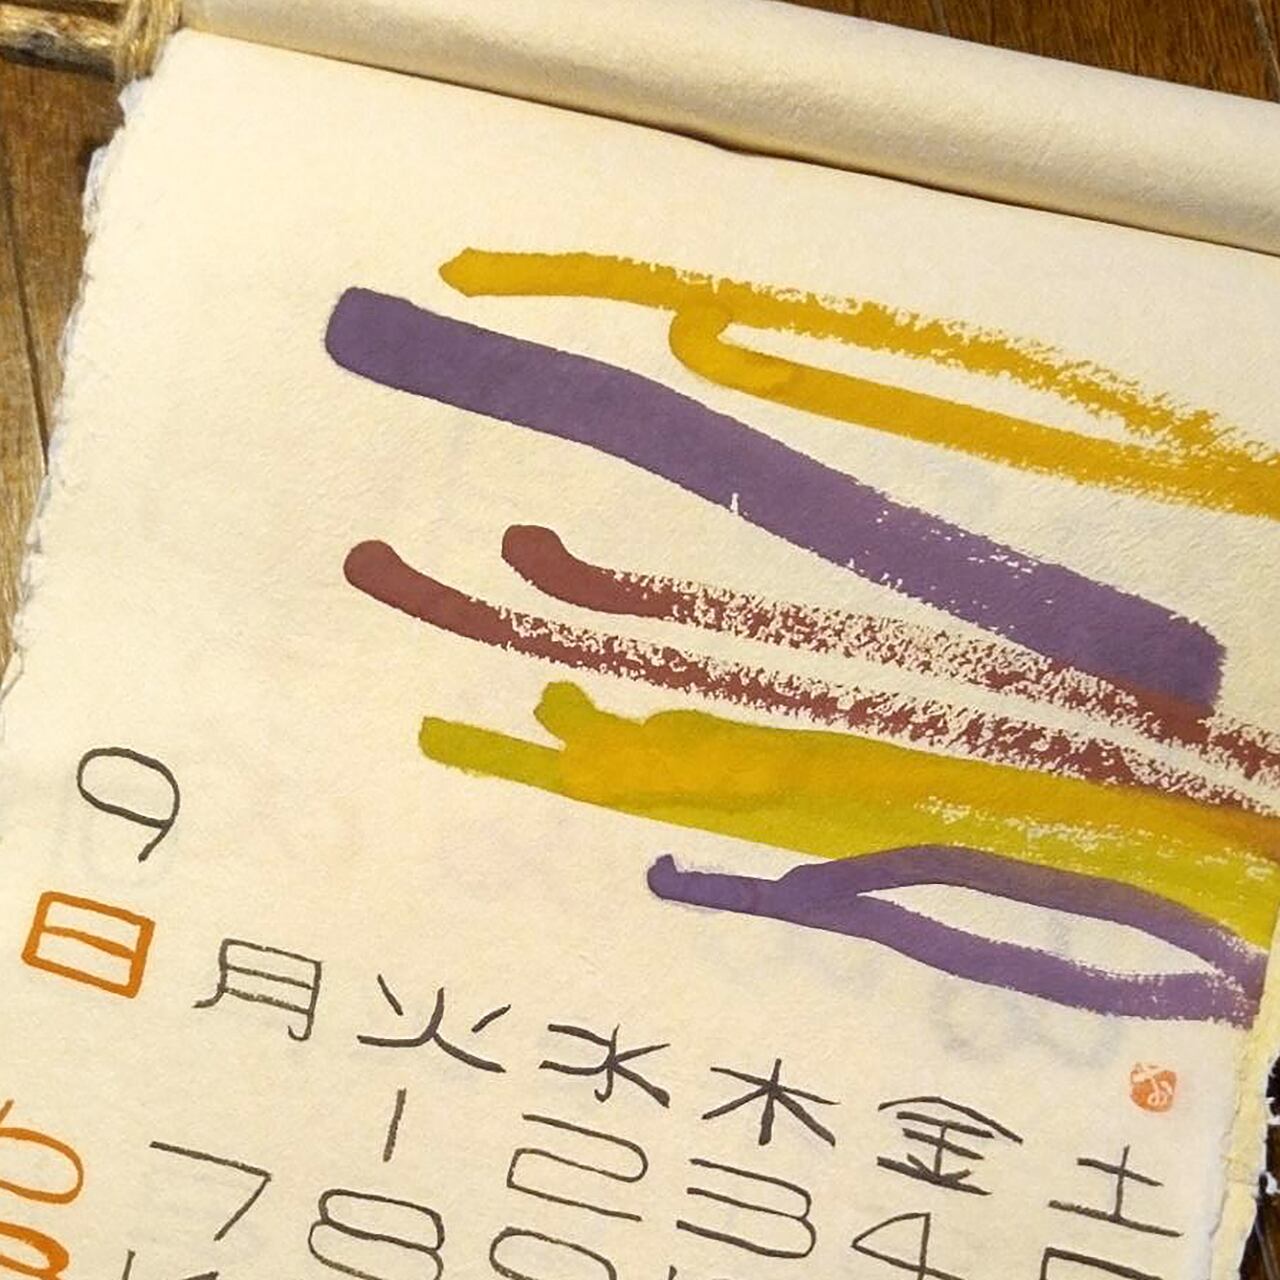 9
日 月 火 水 木 金 土
1 2 3 4
6 7 8